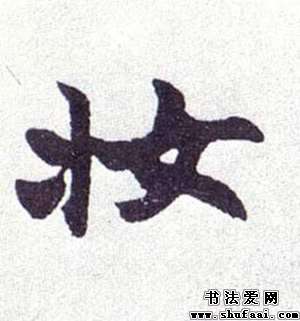 妆
书法爱网
www.shufaai.com